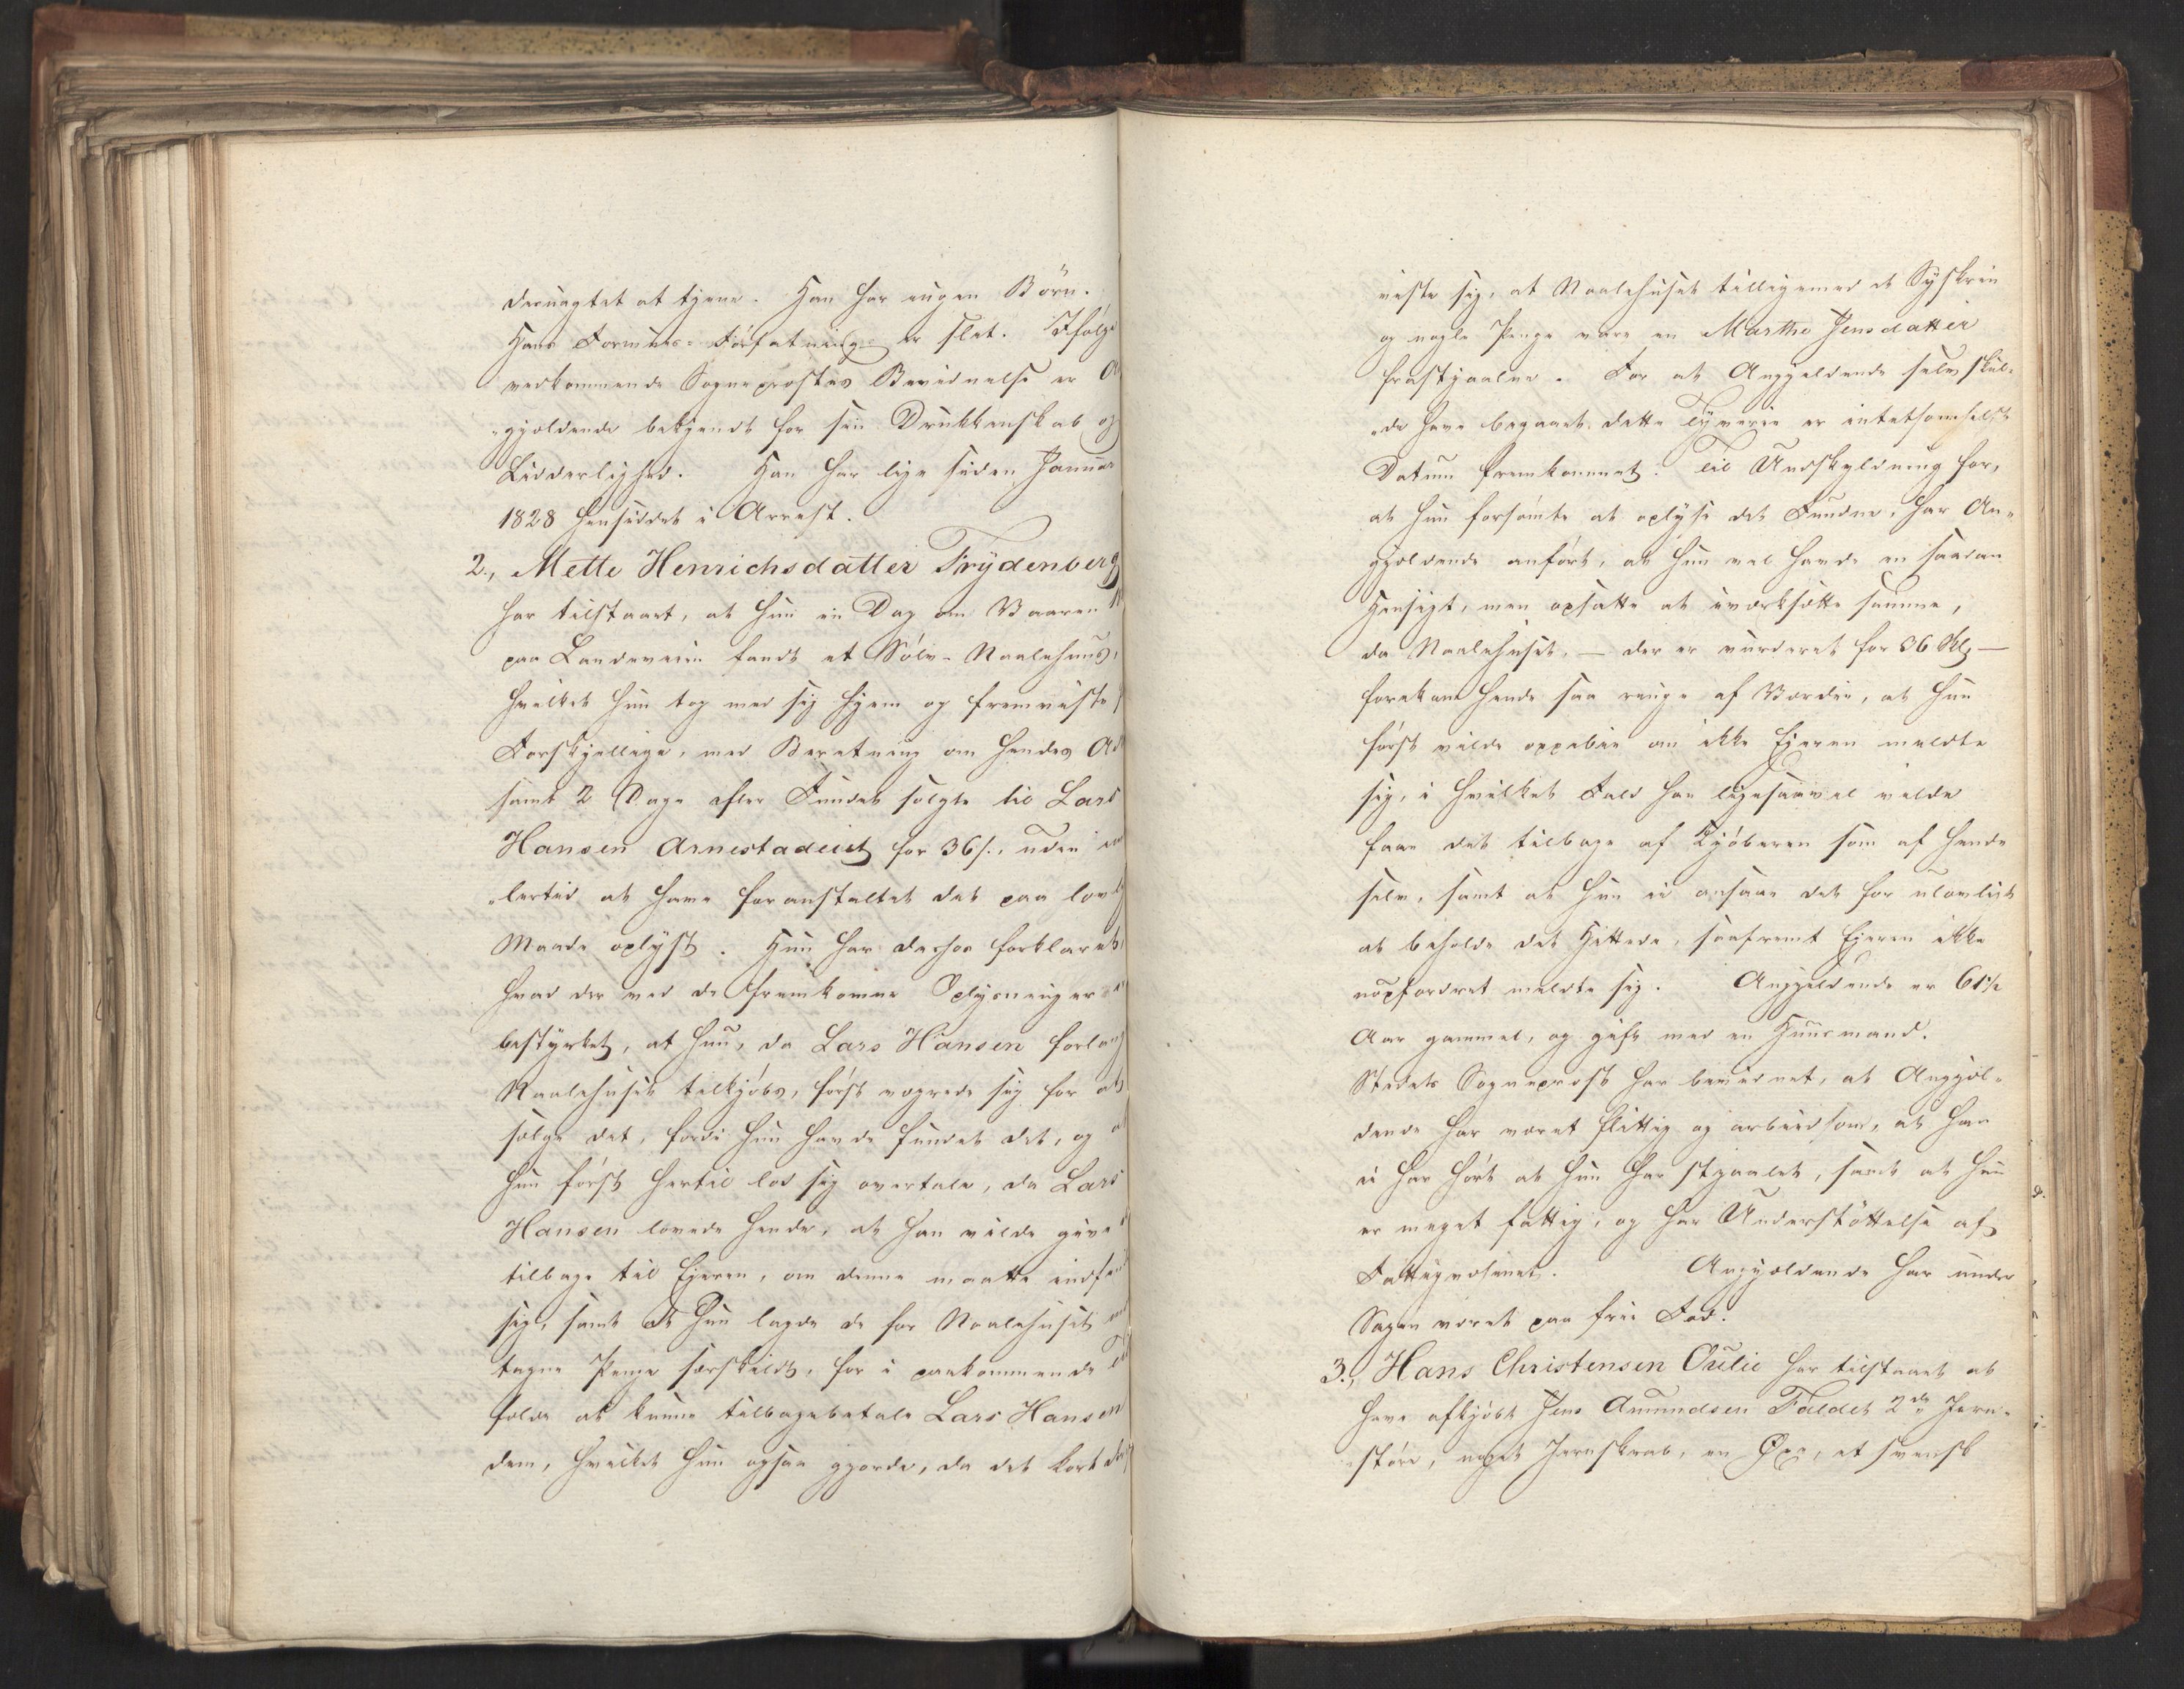 desuagtet at tjene. Han har ingen Börn.
Hans Formues-Forfatning er slet. Ifølge
vedkommende Sogneprestes Bevidnelse er
„gjældende bekjendt for sin Drukkenskab og
Lidderlighed. Han har lige siden Januar
1828 hensiddet i Arrest.
2., Mette Henrichsdatter Frydenberg
har tilstaaet, at hun en Dag om Vaaren
paa Landeveien fandt et Sölv-Naalehuus,
hvilket hun tog med sig hjem og fremviste
Forskjellige, med Beretning om hendes
samt 2 Dage efter Fundet solgte til Lars
Hansen Arnestadeiet for 36 s., uden im
„lertid at have foranstaltet det paa lovlig
Maade oplyst. Hun har derhos forklaret,
hvad der ved de fremkomne Oplysninger er
bestyrket, at hun, da Lars Hansen forlang
Naalehuset tilkjöbs, först vægrede sig for at
sælge det, fordi hun havde fundet det, og at
hun först hertil lod sig overtale, da Lars
Hansen lovede hende, at han vilde give
tilbage til Ejeren, om denne maatte indfinde
sig, samt at hun lagde de for Naalehuset
tagne Penge særskildt, for i paakommende Til
fælde at kunne tilbagebetale Lars Hansen
dem, hvilket hun ogsaa gjorde, da det kort
viste sig, at Naalehuset tilligemed et Syskrin
og nogle Penge vare en Marthe Jensdatter
frastjaalne. For at Angjeldende selv skul-
„de have begaaet dette Tyverie er intetsomhelst
Datum fremkommet. Til Undskyldning for,
at hun forsömte at oplyse det Fundne, har An-
gjældende anført, at hun vel havde en saadan
Hensigt, men opsatte at iværksætte samme,
da Naalehuset, — der er vurderet for 36 Sk —
forekom hende saa ringe af Værdie, at hun
först vilde oppebie om ikke Ejeren meldte
sig, i hvilket Fald han ligesaavel vilde
faae det tilbage af Kjöberen som af hende
selv, samt at hun ei ansaae det for ulovligt
at beholde det Hittede, saafremt Ejeren ikke
uopfordret meldte sig. Angjeldende er 61½
Aar gammel, og gift med en Huusmand.
Stedets Sogneprest har bevidnet, at Angjæl-
dende har været flittig og arbeidsom, at han
ei har hört at hun har stjaalet, samt at hun
er meget fattig, og har Understöttelse af
Fattigvæsenet. Angjældende har under
Sagen været paa frie Fod.
3., Hans Christensen Oulie har tilstaaet at
have afkjöbt Jens Amundsen Faldet 2de Jern-
störe, noget Jernskrab, en Øxe, et svensk